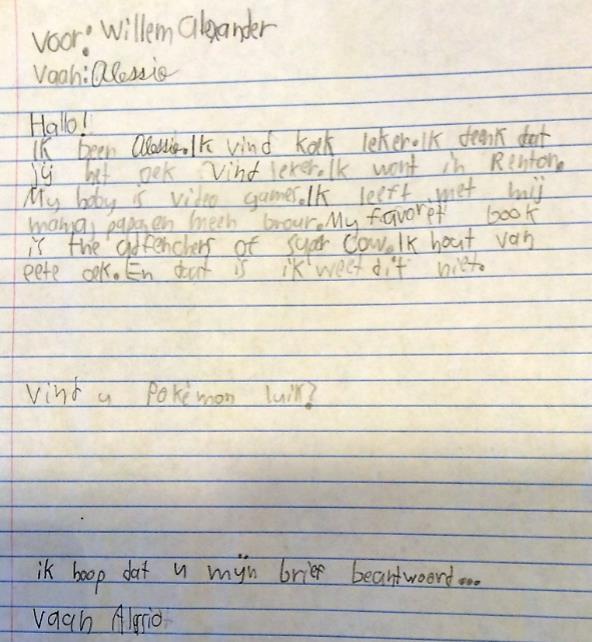 Voor: Willem Alexander
Vaan: Alessio
Hallo!
Ik been Alessio. Ik vind koek leker. Ik deenk dat
jij het oek vind leker. Ik wont in Renton.
My hoby is video games. Ik leeft met mij
mama, papa, en meen brour. My favoret book
is the adfenchers of supr Cow. Ik hout van
eete oek. En daat is ik weet dit niet.
Vind u Pokémon luik?
ik hoop dat u mijn brief beantwoord...
Vaan Alessio